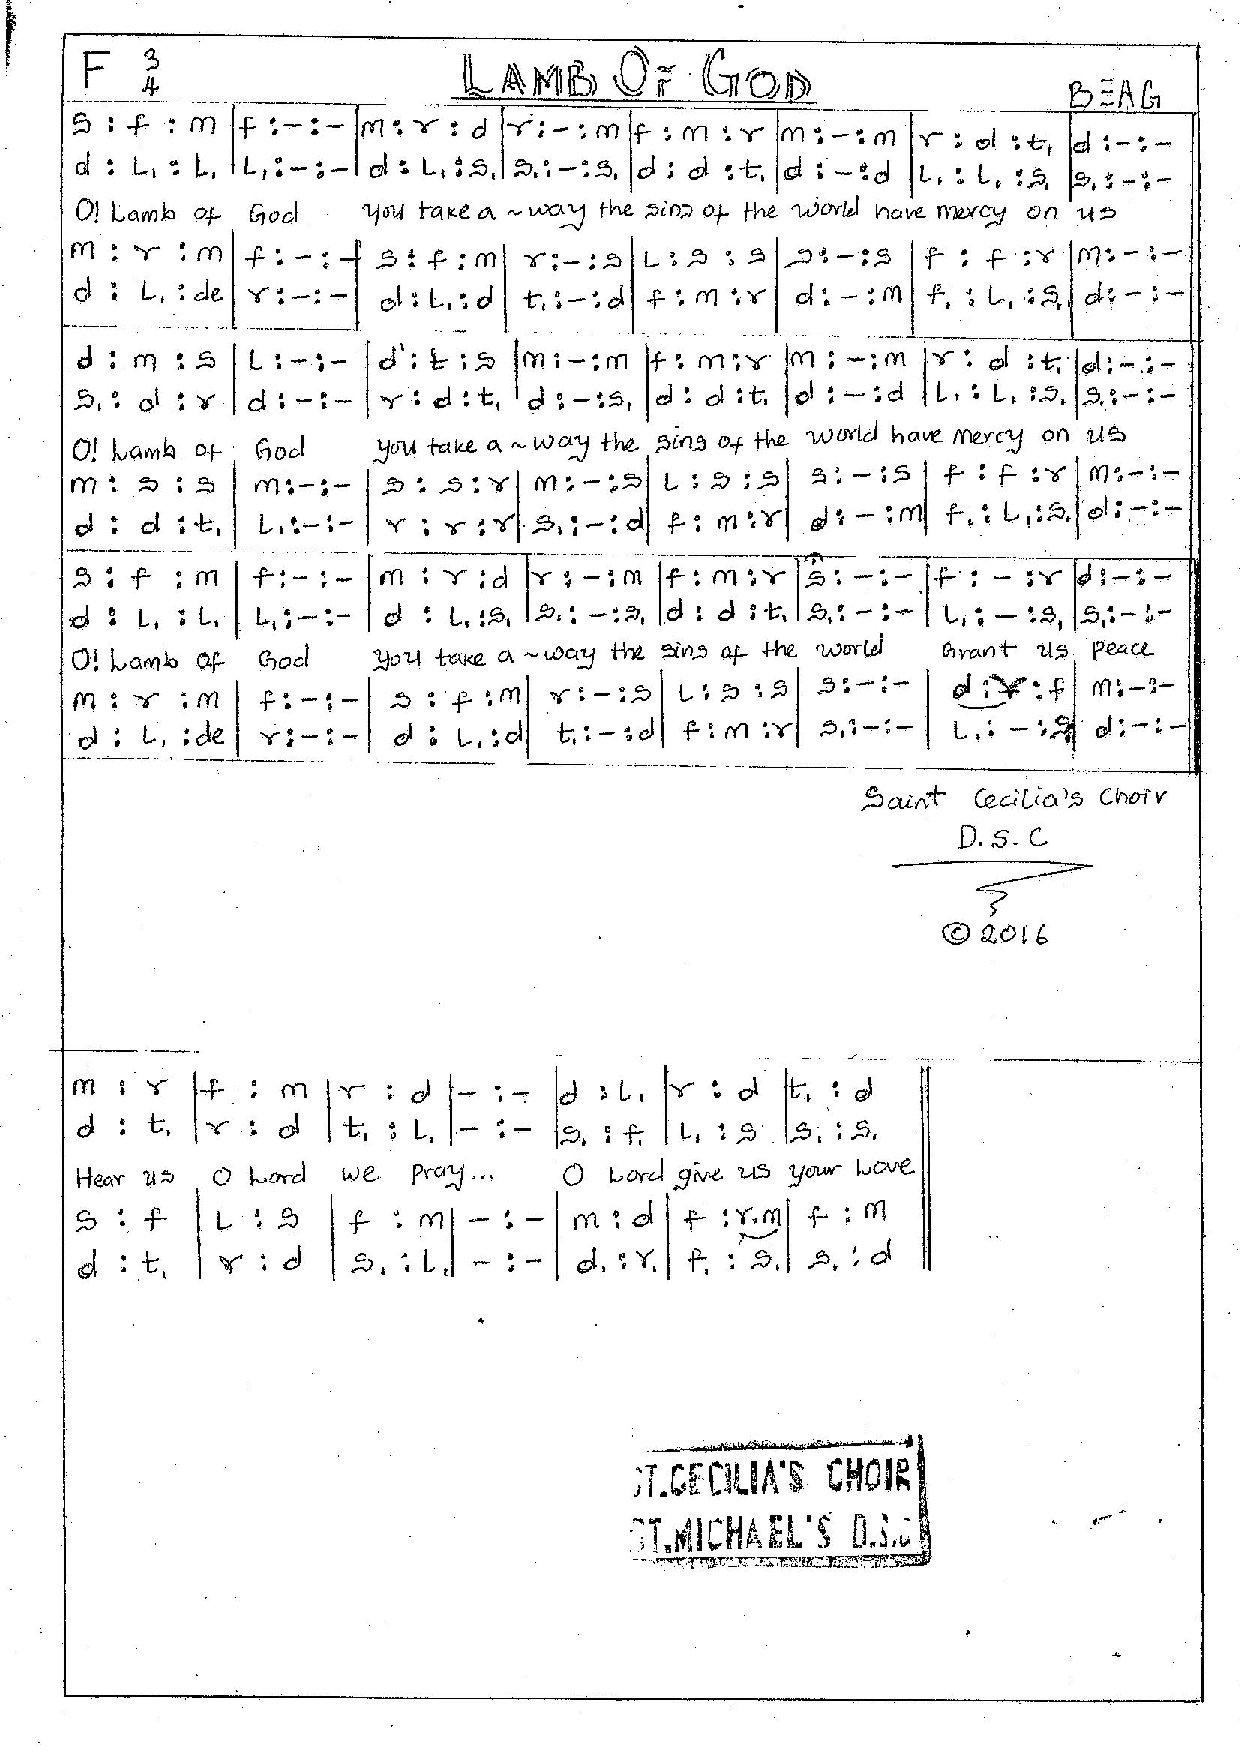 F 3/4 LAMB OF GOD
BEAG
s : f : m | f : - : - | m : r : d | r : - : m | f : m : r | m : - : m | r : d : t, | d : - : -
d : L, : L, | L, : - : - | d : L, : s, | s, : - : s, | d : d : t, | d : - : d | L, : L, : s, | s, : - : -
O! Lamb of God you take a ~ way the sins of the world have mercy on us
m : r : m | f : - : - | s : f : m | r : - : s | L : s : s | s : - : s | f : f : r | m : - : -
d : L, : de | r : - : - | d : L, : d | t, : - : d | f : m : r | d : - : m | f, : L, : s, | d : - : -
d : m : s | L : - : - | d' : t : s | m : - : m | f : m : r | m : - : m | r : d : t, | d : - : -
s, : d : r | d : - : - | r : d : t, | d : - : s, | d : d : t, | d : - : d | L, : L, : s, | s, : - : -
O! Lamb of God you take a ~ way the sins of the world have mercy on us
m : s : s | m : - : - | s : s : r | m : - : s | L : s : s | s : - : s | f : f : r | m : - : -
d : d : t, | L, : - : - | r : r : r | s, : - : d | f : m : r | d : - : m | f, : L, : s, | d : - : -
s : f : m | f : - : - | m : r : d | r : - : m | f : m : r | s : - : - | f : - : r | d : - : -
d : L, : L, | L, : - : - | d : L, : s, | s, : - : s, | d : d : t, | s, : - : - | L, : - : s, | s, : - : -
O! Lamb of God you take a ~ way the sins of the world Grant us peace
m : r : m | f : - : - | s : f : m | r : - : s | L : s : s | s : - : - | d : r : f | m : - : -
d : L, : de | r : - : - | d : L, : d | t, : - : d | f : m : r | s, : - : - | L, : - : s, | d : - : -
Saint Cecilia's Choir
D.S.C
© 2016
m : r | f : m | r : d | - : - | d : L, | r : d | t, : d
d : t, | r : d | t, : L, | - : - | s, : f, | L, : s | s, : s,
Hear us O Lord we pray... O Lord give us your Love
s : f | L : s | f : m | - : - | m : d | f : r.m | f : m
d : t, | r : d | s, : L, | - : - | d, : r, | f, : s, | s, : d
ST.CECILIA'S CHOIR
ST.MICHAEL'S D.S.C